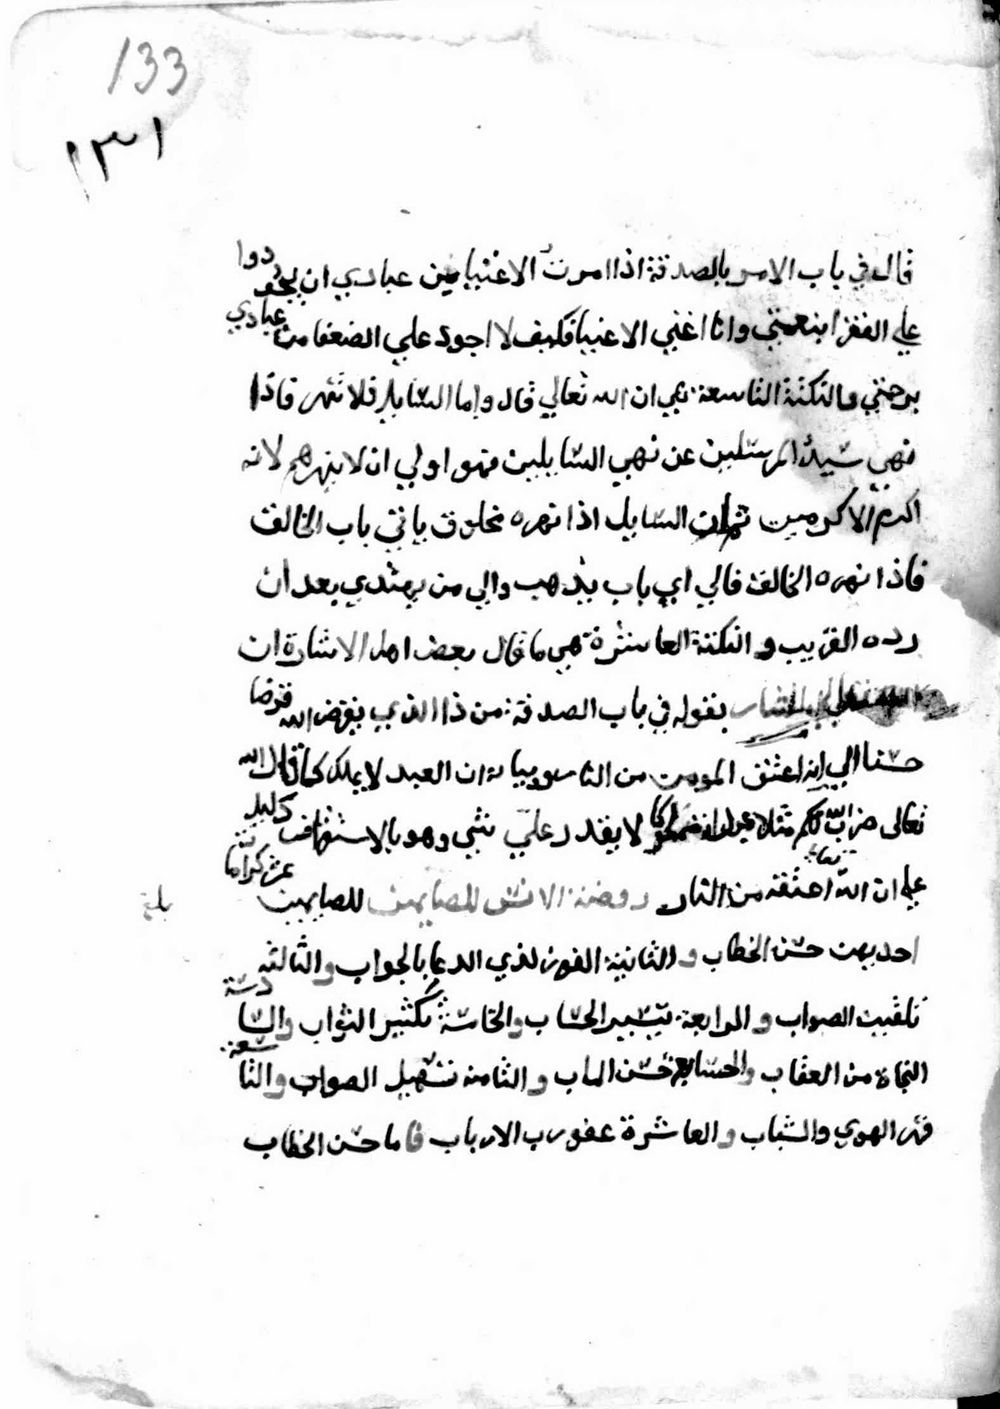 133
١٣١
قال في باب الامر بالصدقة اذا امرت الاغنيا من عبادي ان يجودوا
علي الفقرا بنعمتي وانا اغني الاغنيا فكيف لا اجود علي الضعفا من عبادي
برحمتي والنكتة التاسعة هي ان الله تعالي قال واما السايل فلا تنهر فاذا
نهي سيد المرسلين عن نهي السايلين فهو اولي ان لا ينهرهم لانه
اكرم الاكرمين ثم ان السايل اذا نهره مخلوق ياتي باب الخالق
فاذا نهره الخالق فالي اي باب يذهب والي من يهتدي بعد ان
رده القريب والنكتة العاشرة هي ما قال بعض اهل الاشارة ان
بقوله في باب الصدقة من ذا الذي يقرض الله قرضا
حسنا الي انه اعتق المومن من النار وبيانه ان العبد لا يملك كما قال الله
تعالى ضرب الله مثلا عبدا مملوكا لا يقدر علي شي وهو بالاستقراض دليل
علي ان الله تعالى اعتقه من النار روضة الانس للصايمين للصايمين عشر كرامات
بلغ
احديهن حسن الخطاب والثانية الفوز لذي الدعا بالجواب والثالثة
تلقين الصواب والرابعة تيسير الحساب والخامسة تكثير الثواب والسادسة
النجاة من العقاب والسابعة حسن الماب والثامن تسهيل الصواب والتاسعة
قهر الهوي والشباب والعاشرة عفو رب الارباب فاما حسن الخطاب